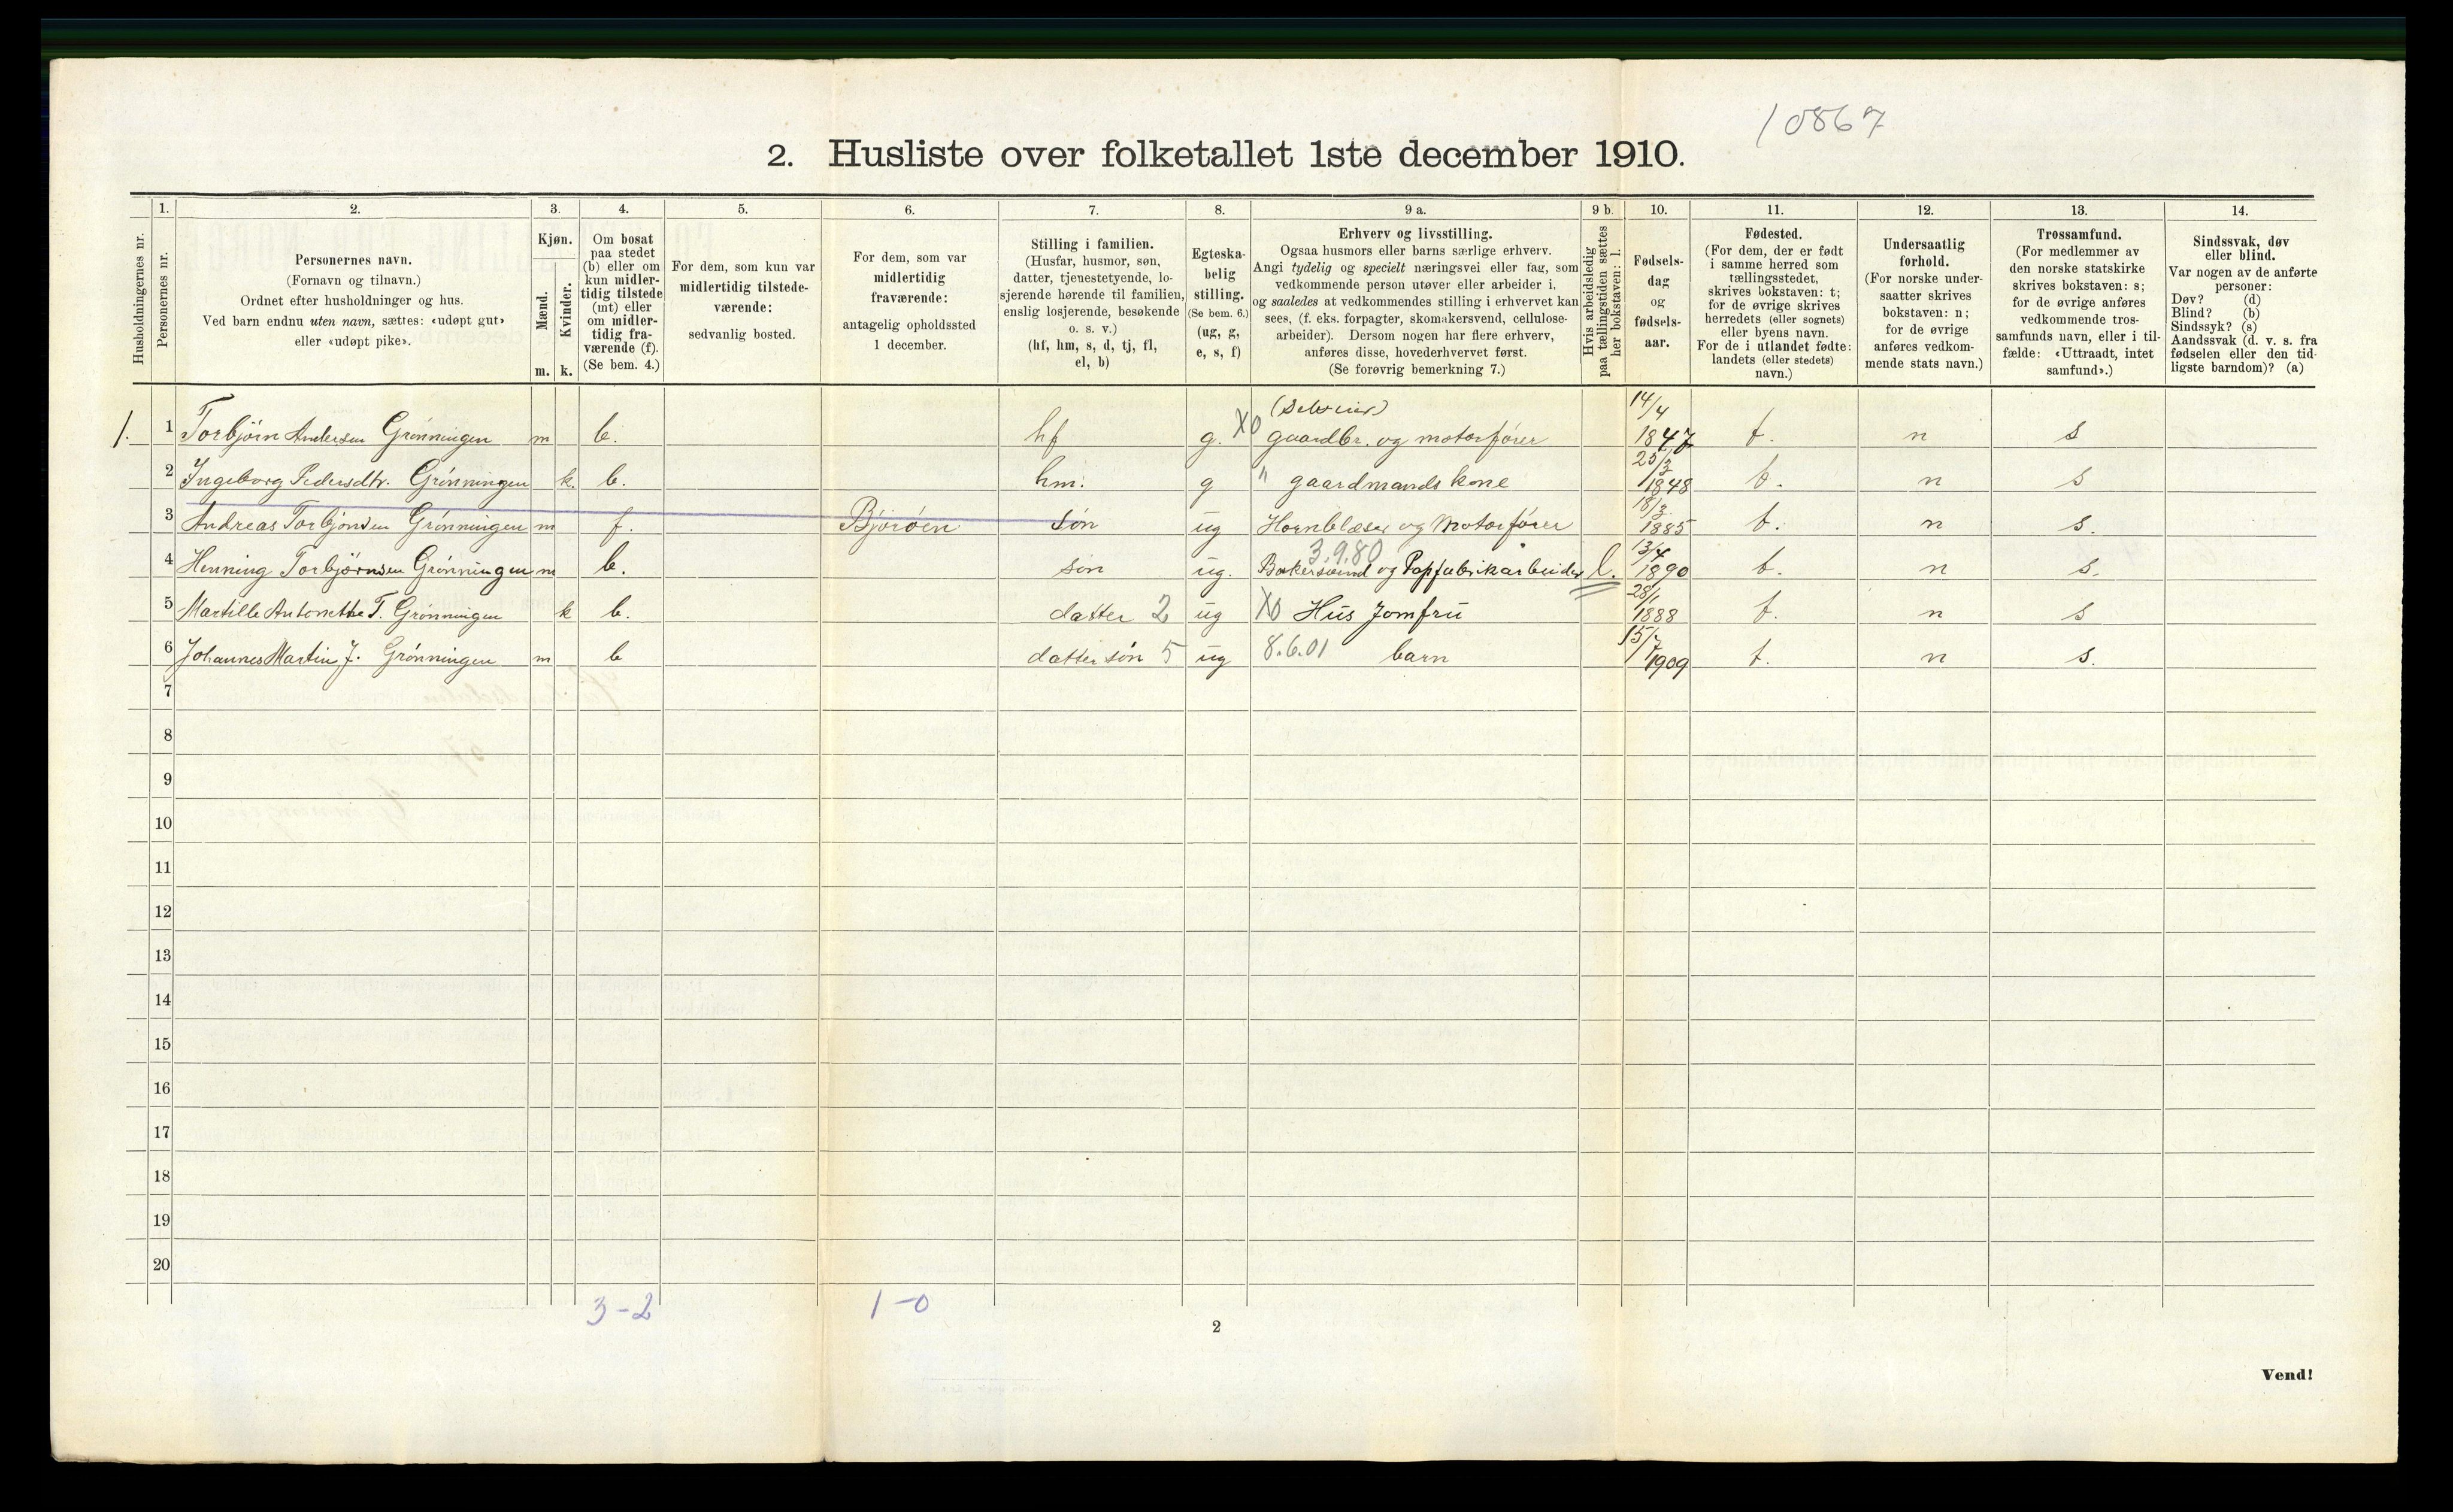 10867
2. Husliste over folketallet 1ste december 1910.
Husholdningernes nr.
1.
Personernes nr.
2.
Personernes navn.
(Fornavn og tilnavn.)
Ordnet efter husholdninger og hus.
Ved barn endnu uten navn, sættes: «udøpt gut»
eller «udøpt pike».
3.
Kjøn.
Mænd.
Kvinder.
m. k.
4.
Om bosat
paa stedet
(b) eller om
kun midler-
tidig tilstede
(mt) eller
om midler-
tidig fra-
værende (f).
(Se bem. 4.)
5.
For dem, som kun var
midlertidig tilstede-
værende:
sedvanlig bosted.
6.
For dem, som var
midlertidig
fraværende:
antagelig opholdssted
1 december.
7.
Stilling i familien.
(Husfar, husmor, søn,
datter, tjenestetyende, lo-
sjerende hørende til familien,
enslig losjerende, besøkende
o. s. v.)
(hf, hm, s, d, tj, fl,
el, b)
8.
Egteska-
belig
stilling.
(Se bem. 6.)
(ug, g,
e, s, f)
9 a.
Erhverv og livsstilling.
Ogsaa husmors eller barns særlige erhverv.
Angi tydelig og specielt næringsvei eller fag, som
vedkommende person utøver eller arbeider i,
og saaledes at vedkommendes stilling i erhvervet kan
sees, (f. eks. forpagter, skomakersvend, cellulose-
arbeider). Dersom nogen har flere erhverv,
anføres disse, hovederhvervet først.
(Se forøvrig bemerkning 7.)
9 b.
Hvis arbeidsledig
paa tællingstiden sættes
her bokstaven: l.
10.
Fødsels-
dag
og
fødsels-
aar.
11.
Fødested.
(For dem, der er født
i samme herred som
tællingsstedet,
skrives bokstaven: t;
for de øvrige skrives
herredets (eller sognets)
eller byens navn.
For de i utlandet fødte:
landets (eller stedets)
navn.)
12.
Undersaatlig
forhold.
(For norske under-
saatter skrives
bokstaven: n;
for de øvrige
anføres vedkom-
mende stats navn.)
13.
Trossamfund.
(For medlemmer av
den norske statskirke
skrives bokstaven: s;
for de øvrige anføres
vedkommende tros-
samfunds navn, eller i til-
fælde: «Uttraadt, intet
samfund».)
14.
Sindssvak, døv
eller blind.
Var nogen av de anførte
personer:
Døv? (d)
Blind? (b)
Sindssyk? (s)
Aandssvak (d. v. s. fra
fødselen eller den tid-
ligste barndom)? (a)
1. 1 Torbjörn Andersen Grönningen m b. hf g. X0 (Selveier) gaardbr. og motorförer 14/4 1847 t. n s
2 Ingeborg Pedersdtr. Grönningen k. b. hm. g " gaardmands kone 25/3 1848 t. n s
3 Andreas Torbjönsen Grönningen m f. Björöen sön ug Hornblæser og Motorförer 18/3 1885 t. n s.
4 Henning Torbjörnsen Grönningen m b. sön ug. 3.9.80 Bakersvend og Papfabrikarbeider l. 13/4 1890 t. n s.
5 Martille Antonette T. Grönningen k b. datter 2 ug X0 Hus Jomfru 28/1 1888 t. n s
6 Johannes Martin J. Grönningen m b datter sön 5 ug 8.6.01 barn 15/7 1909 t. n s.
7
8
9
10
11
12
13
14
15
16
17
18
19
20
3-2 1-0
2
Vend!